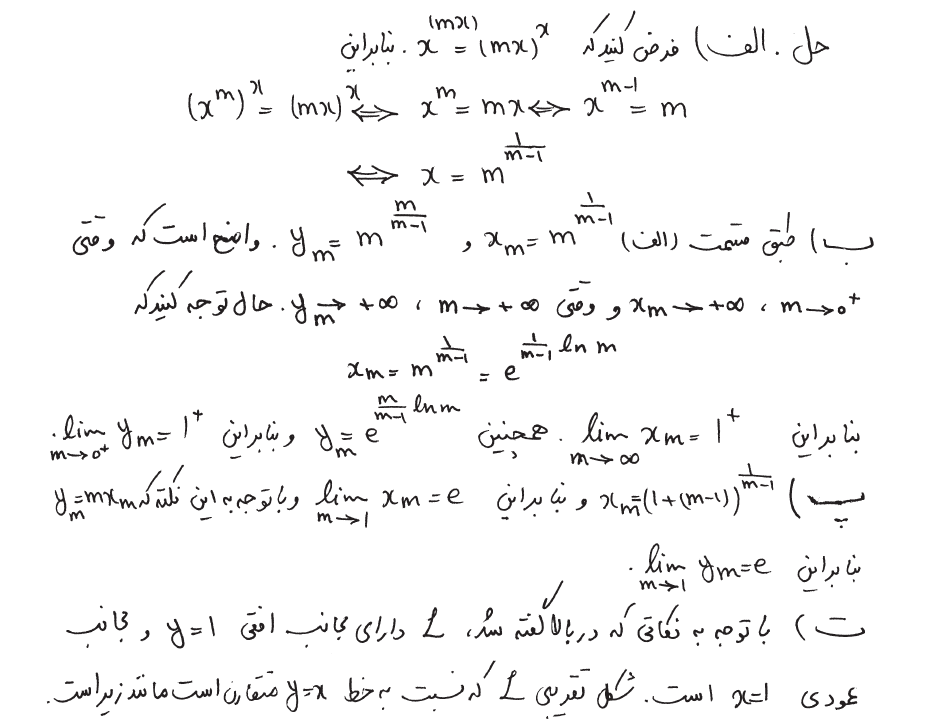 حل. الف) فرض کنید که x^(mx) = (mx)^x. بنابراین
(x^m)^x = (mx)^x ⟺ x^m = mx ⟺ x^(m-1) = m
⟺ x = m^(1/(m-1))
ب) طبق قسمت (الف) x_m = m^(1/(m-1)) و y_m = m^(m/(m-1)). واضح است که وقتی
m → 0⁺، x_m → +∞ و وقتی m → +∞، y_m → +∞. حال توجه کنید که
x_m = m^(1/(m-1)) = e^((1/(m-1)) ln m)
بنابراین lim_{m→∞} x_m = 1⁺. همچنین y_m = e^((m/(m-1)) ln m) و بنابراین lim_{m→0⁺} y_m = 1⁺.
پ) x_m = (1+(m-1))^(1/(m-1)) و بنابراین lim_{m→1} x_m = e و با توجه به این نکته که y_m = m x_m
بنابراین lim_{m→1} y_m = e.
ت) با توجه به نکاتی که در بالا گفته شد، L دارای مجانب افقی y = 1 و مجانب
عمودی x = 1 است. شکل تقریبی L که نسبت به خط y = x متقارن است مانند زیر است.